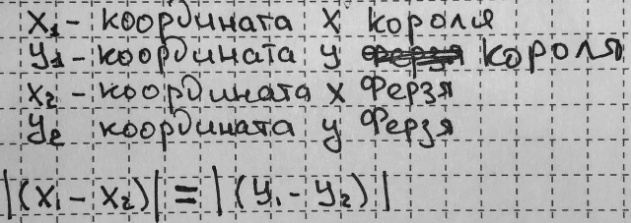 x₁ - координата x короля
y₁ - координата y короля
x₂ - координата x Ферзя
y₂ координата y Ферзя
|(x₁ - x₂)| = |(y₁ - y₂)|